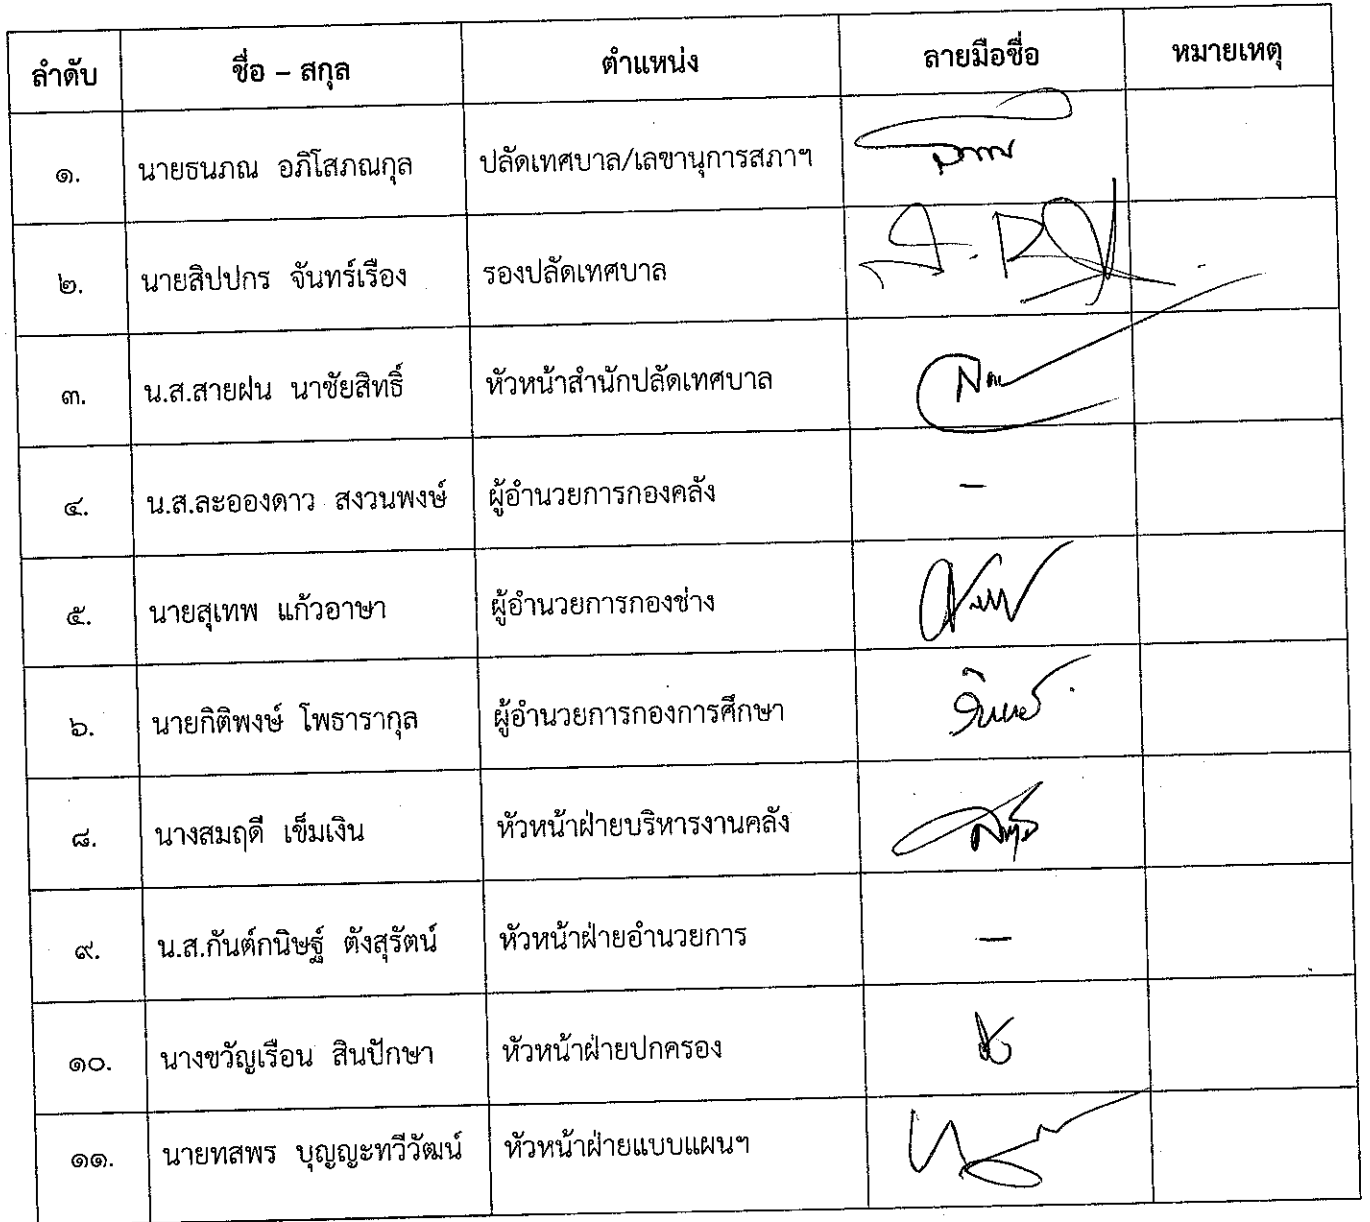 ลำดับ ชื่อ – สกุล ตำแหน่ง ลายมือชื่อ หมายเหตุ
๑. นายธนภณ อภิโสภณกุล ปลัดเทศบาล/เลขานุการสภาฯ
๒. นายสิปปกร จันทร์เรือง รองปลัดเทศบาล
๓. น.ส.สายฝน นาชัยสิทธิ์ หัวหน้าสำนักปลัดเทศบาล
๔. น.ส.ละอองดาว สงวนพงษ์ ผู้อำนวยการกองคลัง –
๕. นายสุเทพ แก้วอาษา ผู้อำนวยการกองช่าง
๖. นายกิติพงษ์ โพธารากุล ผู้อำนวยการกองการศึกษา
๘. นางสมฤดี เข็มเงิน หัวหน้าฝ่ายบริหารงานคลัง
๙. น.ส.กันต์กนิษฐ์ ตังสุรัตน์ หัวหน้าฝ่ายอำนวยการ –
๑๐. นางขวัญเรือน สินปักษา หัวหน้าฝ่ายปกครอง
๑๑. นายทสพร บุญญะทวีวัฒน์ หัวหน้าฝ่ายแบบแผนฯ